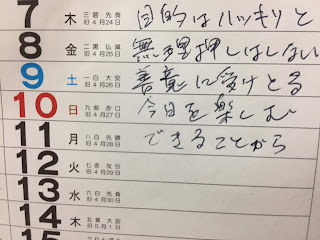 7 木 三碧 先負 旧4月24日 目的はハッキリと
8 金 二黒 仏滅 旧4月25日 無理押しはしない
9 土 一白 大安 旧4月26日 善意に受けとる
10 日 九紫 赤口 旧4月27日 今日を楽しむ
11 月 八白 先勝 旧4月28日 できることから
12 火 七赤 友引 旧4月29日
13 水 六白 先負 旧4月30日
14 木 五黄 大安 旧5月1日
15